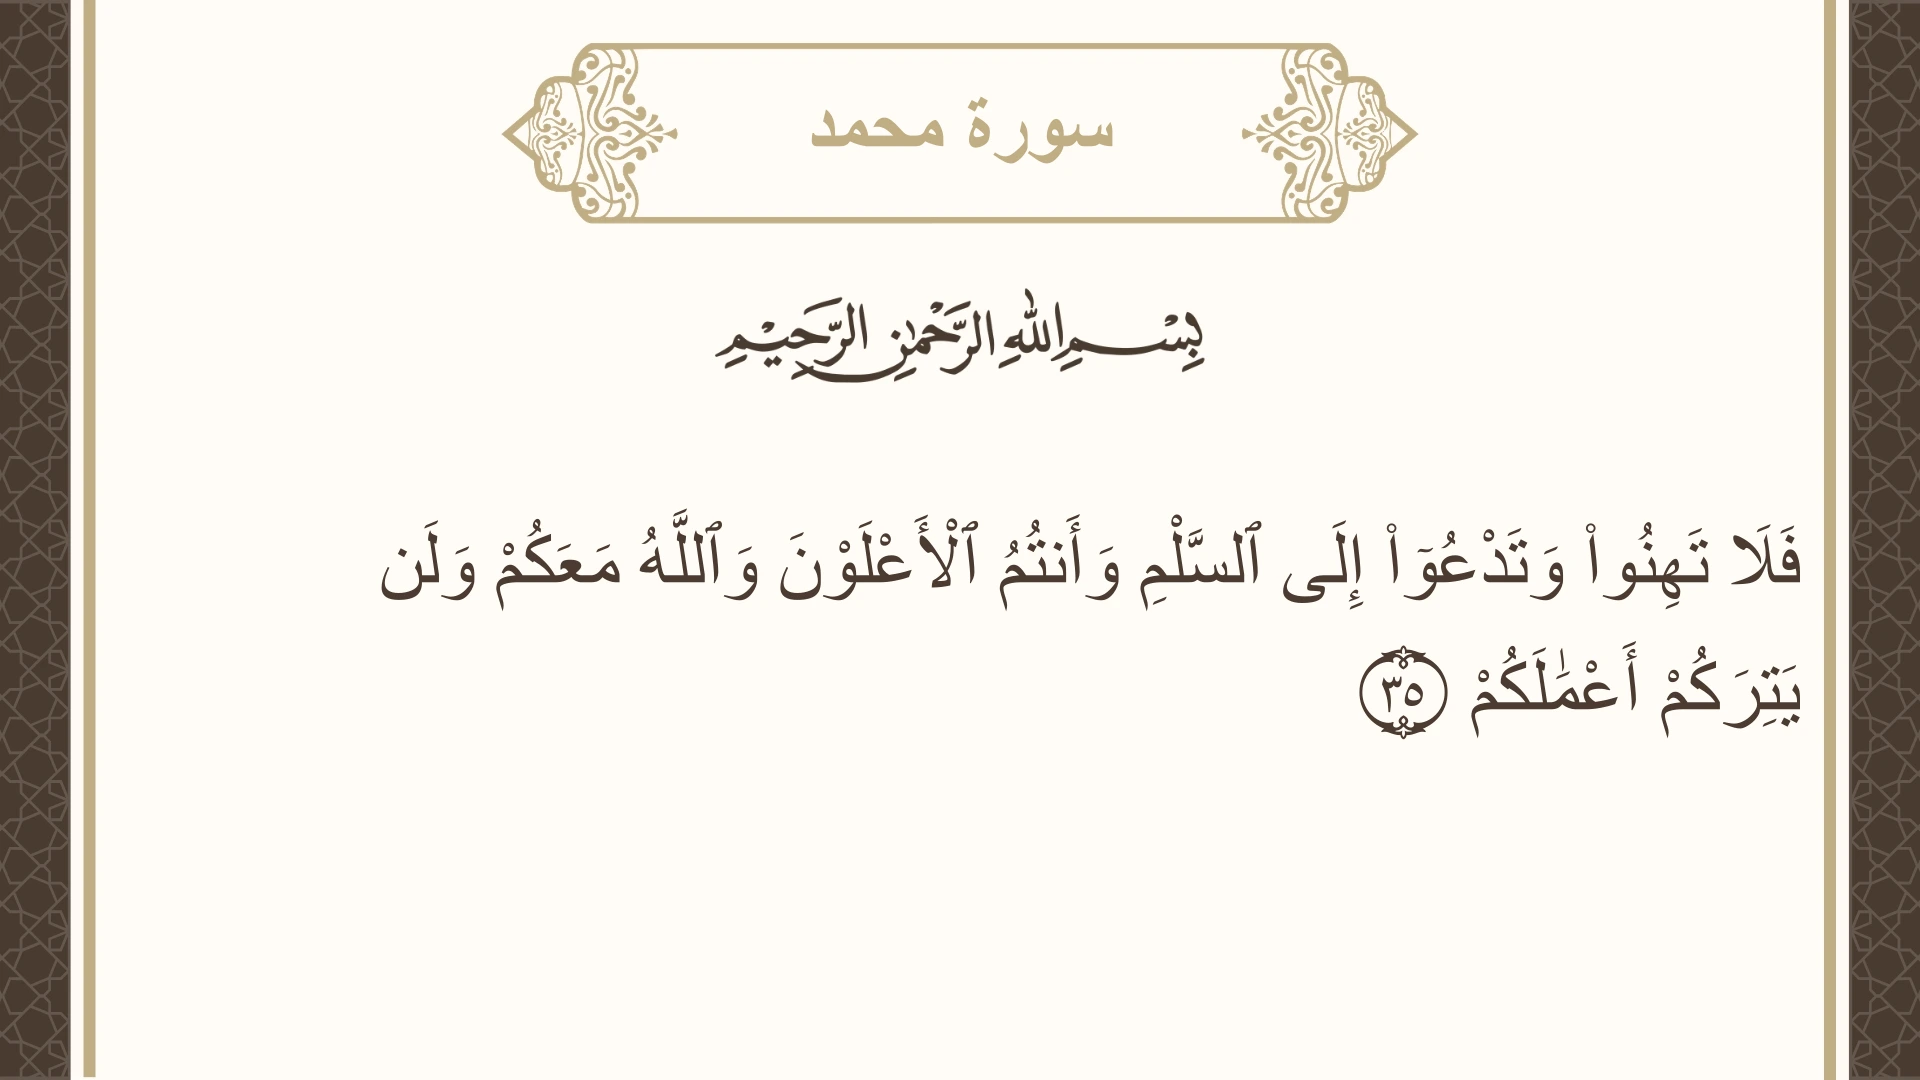 سورة محمد
بِسْمِ اللهِ الرَّحْمٰنِ الرَّحِيْمِ
فَلَا تَهِنُوا۟ وَتَدْعُوٓا۟ إِلَى ٱلسَّلْمِ وَأَنتُمُ ٱلْأَعْلَوْنَ وَٱللَّهُ مَعَكُمْ وَلَن
يَتِرَكُمْ أَعْمَٰلَكُمْ ٣٥